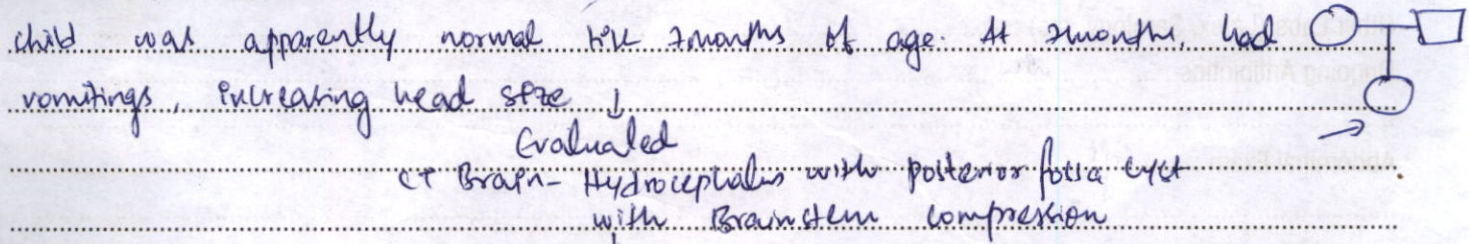 child was apparently normal till 2months of age. At 2months, had
vomitings, increasing head size ↓
Evaluated
CT Brain - Hydrocephalus with posterior fossa cyst
with Brainstem compression
↓